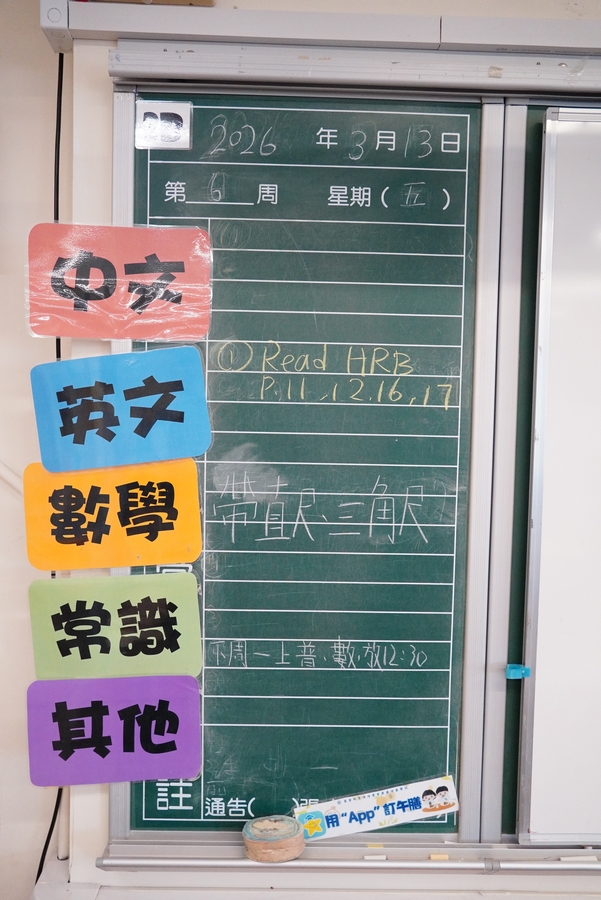 2026 年 3 月 13 日
第 6 周 星期 ( 五 )
中文
英文
① Read HRB
P.11, 12, 16, 17
數學
帶直尺、三角尺
常識
下周一上普、數,放12:30
其他
註
通告( )張
用“App”訂午膳